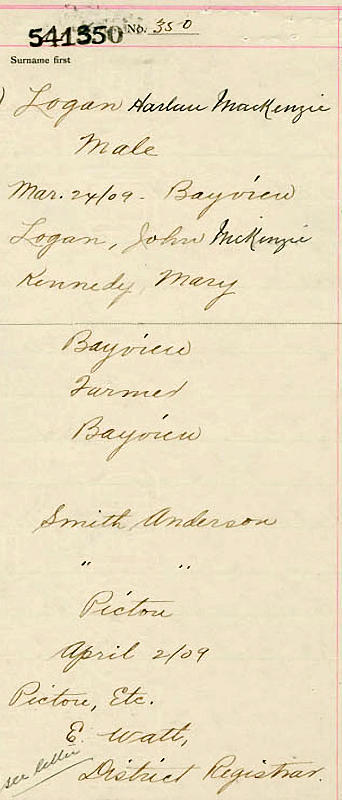 541350 No. 350
Surname first
Logan Harlan MacKenzie
Male
Mar. 24/09 - Bayview
Logan, John McKenzie
Kennedy, Mary
Bayview
Farmer
Bayview
Smith Anderson
" "
Pictou
April 2/09
Pictou, Etc.
E. Watt,
see letter
District Registrar.